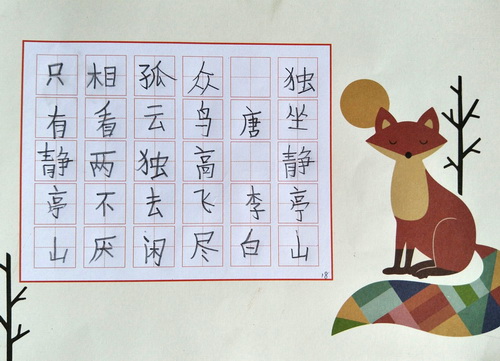 独坐静亭山
唐 李白
众鸟高飞尽
孤云独去闲
相看两不厌
只有静亭山
18